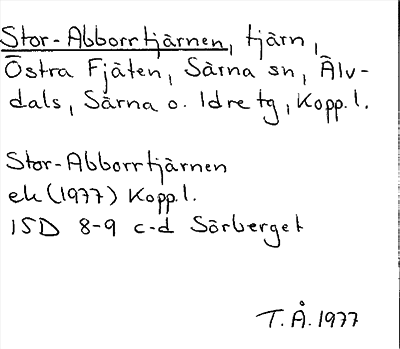 Stor-Abborrtjärnen, tjärn,
Östra Fjäten, Särna sn, Älv-
dals, Särna o. Idre tg, Kopp.l.
Stor-Abborrtjärnen
ek (1977) Kopp.l.
15D 8-9 c-d Sörberget
T.Å. 1977